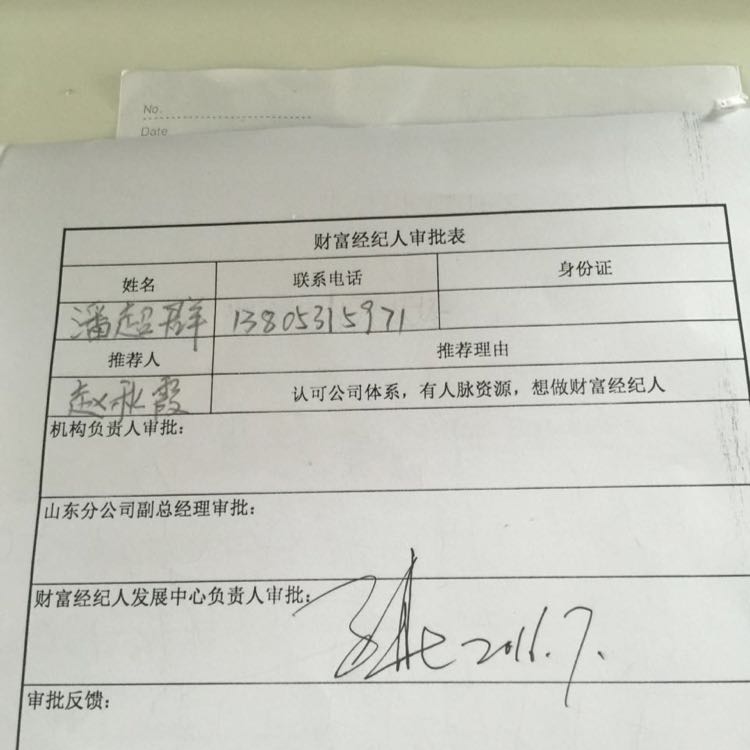 No.
Date
财富经纪人审批表
姓名 联系电话 身份证
潘超群 13805315971
推荐人 推荐理由
赵永霞 认可公司体系，有人脉资源，想做财富经纪人
机构负责人审批：
山东分公司副总经理审批：
财富经纪人发展中心负责人审批：
2016.7.
审批反馈：